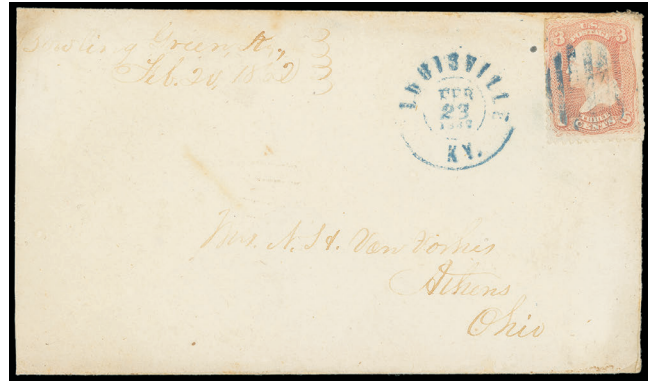 Bowling Green, Ky.,
Feb. 20, 1862
LOUISVILLE
FEB
23
1862
KY.
3 U.S. 3
POSTAGE
THREE
CENTS
Mrs. N. H. Van Vorhes
Athens
Ohio